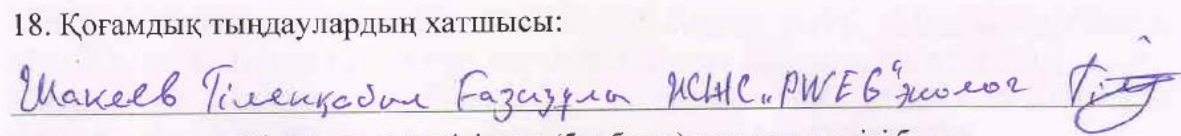 18. Қоғамдық тыңдаулардың хатшысы:
Шакеев Тіленқабыл Ғазизұлы ЖШС „PWEG“ эколог